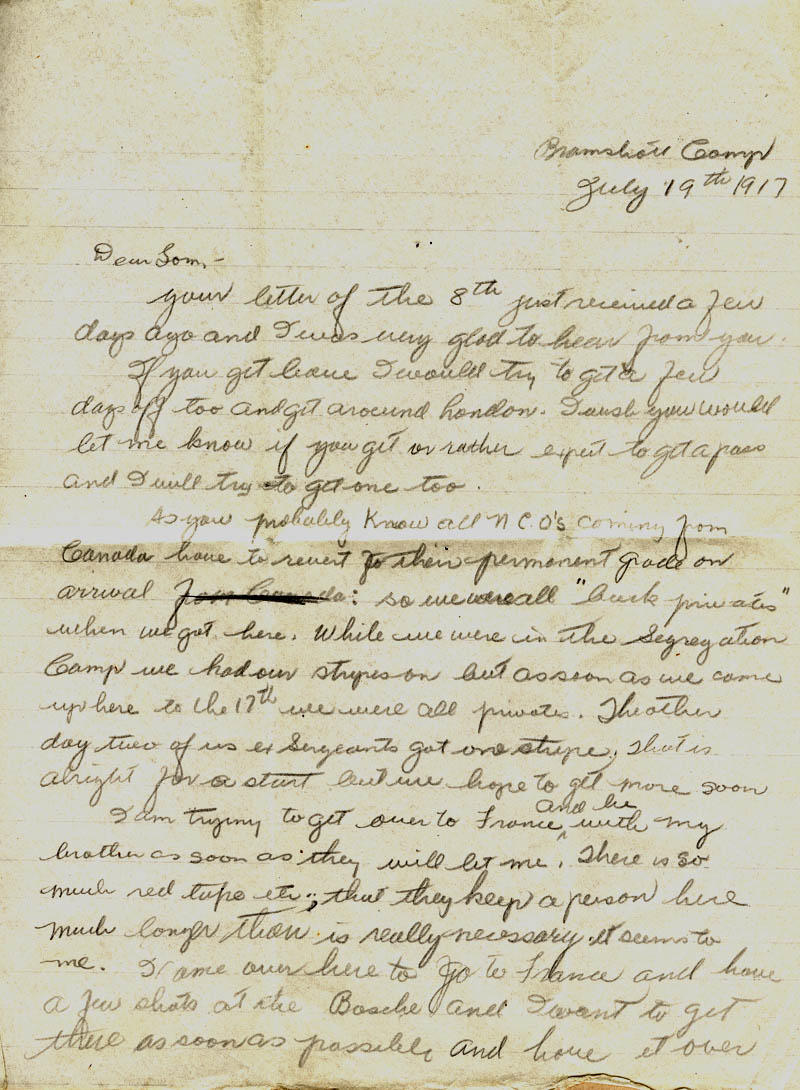 Bramshott Camp
July 19th 1917
Dear Tom,-
your letter of the 8th just received a few
days ago and I was very glad to hear from you.
If you get leave I would try to get a few
days off too and get around London. I wish you would
let me know if you get or rather expect to get a pass
and I will try to get one too.
As you probably know all N C.O's coming from
Canada have to revert to their permanent grade on
arrival from Canada: so we were all "buck privates"
when we got here. While we were in the Segregation
Camp we had our stripes on but as soon as we came
up here to the 17th we were all privates. The other
day two of us ex Sergeants got one stripe, that is
alright for a start but we hope to get more soon
I am trying to get over to France, and be with my
brother as soon as they will let me. There is so
much red tape etc., that they keep a person here
much longer than is really necessary it seems to
me. I came over here to go to France and have
a few shots at the Bosche and I want to get
there as soon as possible and have it over